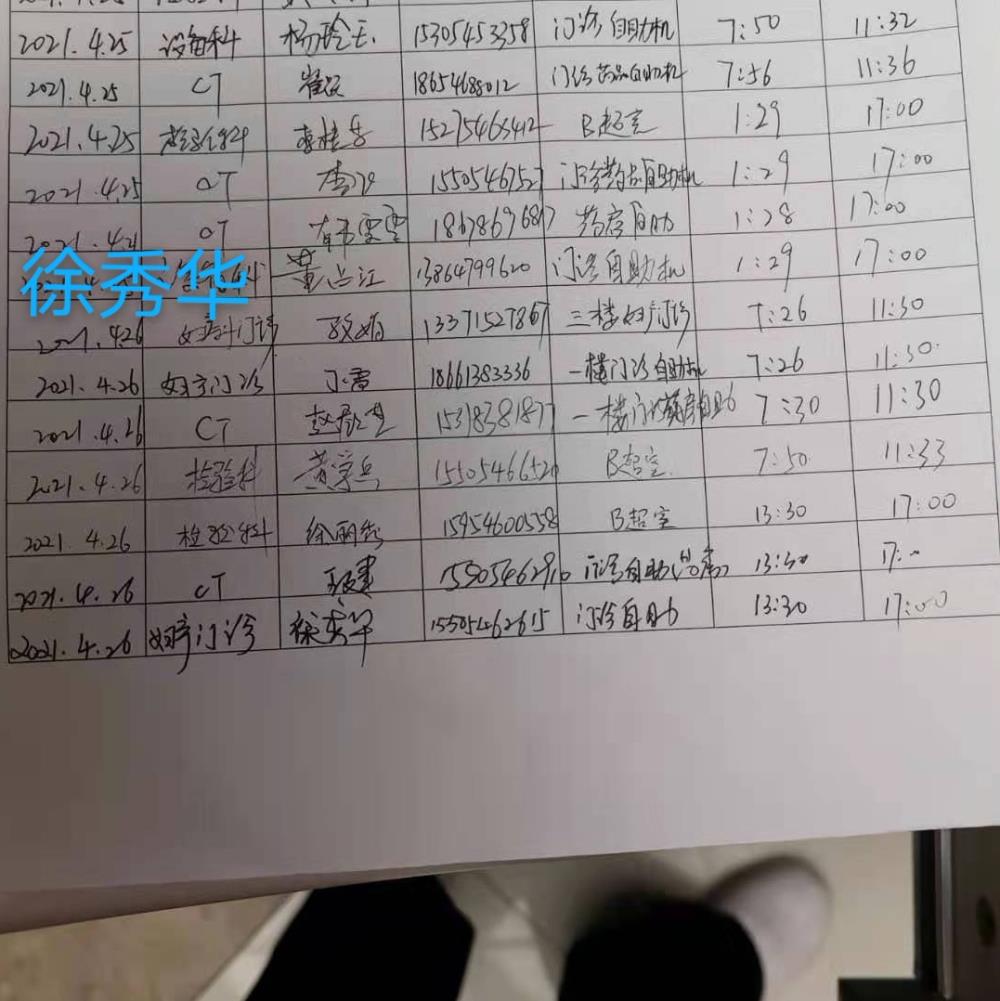 2021.4.25 设备科 杨玲玉 15305453358 门诊自助机 7:50 11:32
2021.4.25 CT 18654688012 门诊药品自助机 7:56 11:36
2021.4.25 李桂芳 15275465412 B超室 1:29 17:00
2021.4.25 CT 李 1550546752 门诊药品自助机 1:29 17:00
2021.4.2 CT 雯雯 1867869681 药房自助 1:28 17:00
徐秀华 董占江 13864799620 门诊自助机 1:29 17:00
2021.4.26 妇科门诊 13371527867 三楼妇产门诊 7:26 11:30
2021.4.26 妇产门诊 18661383336 一楼门诊自助机 7:26 11:30
2021.4.26 CT 赵 15318381877 一楼门诊药房自助 7:30 11:30
2021.4.26 检验科 黄学兵 15505466526 B超室 7:50 11:33
2021.4.26 检验科 徐丽 15954600558 B超室 13:30 17:00
2021.4.26 CT 1550546291 门诊自助 13:30 17:00
2021.4.26 妇产门诊 徐秀华 15505462615 门诊自助 13:30 17:00